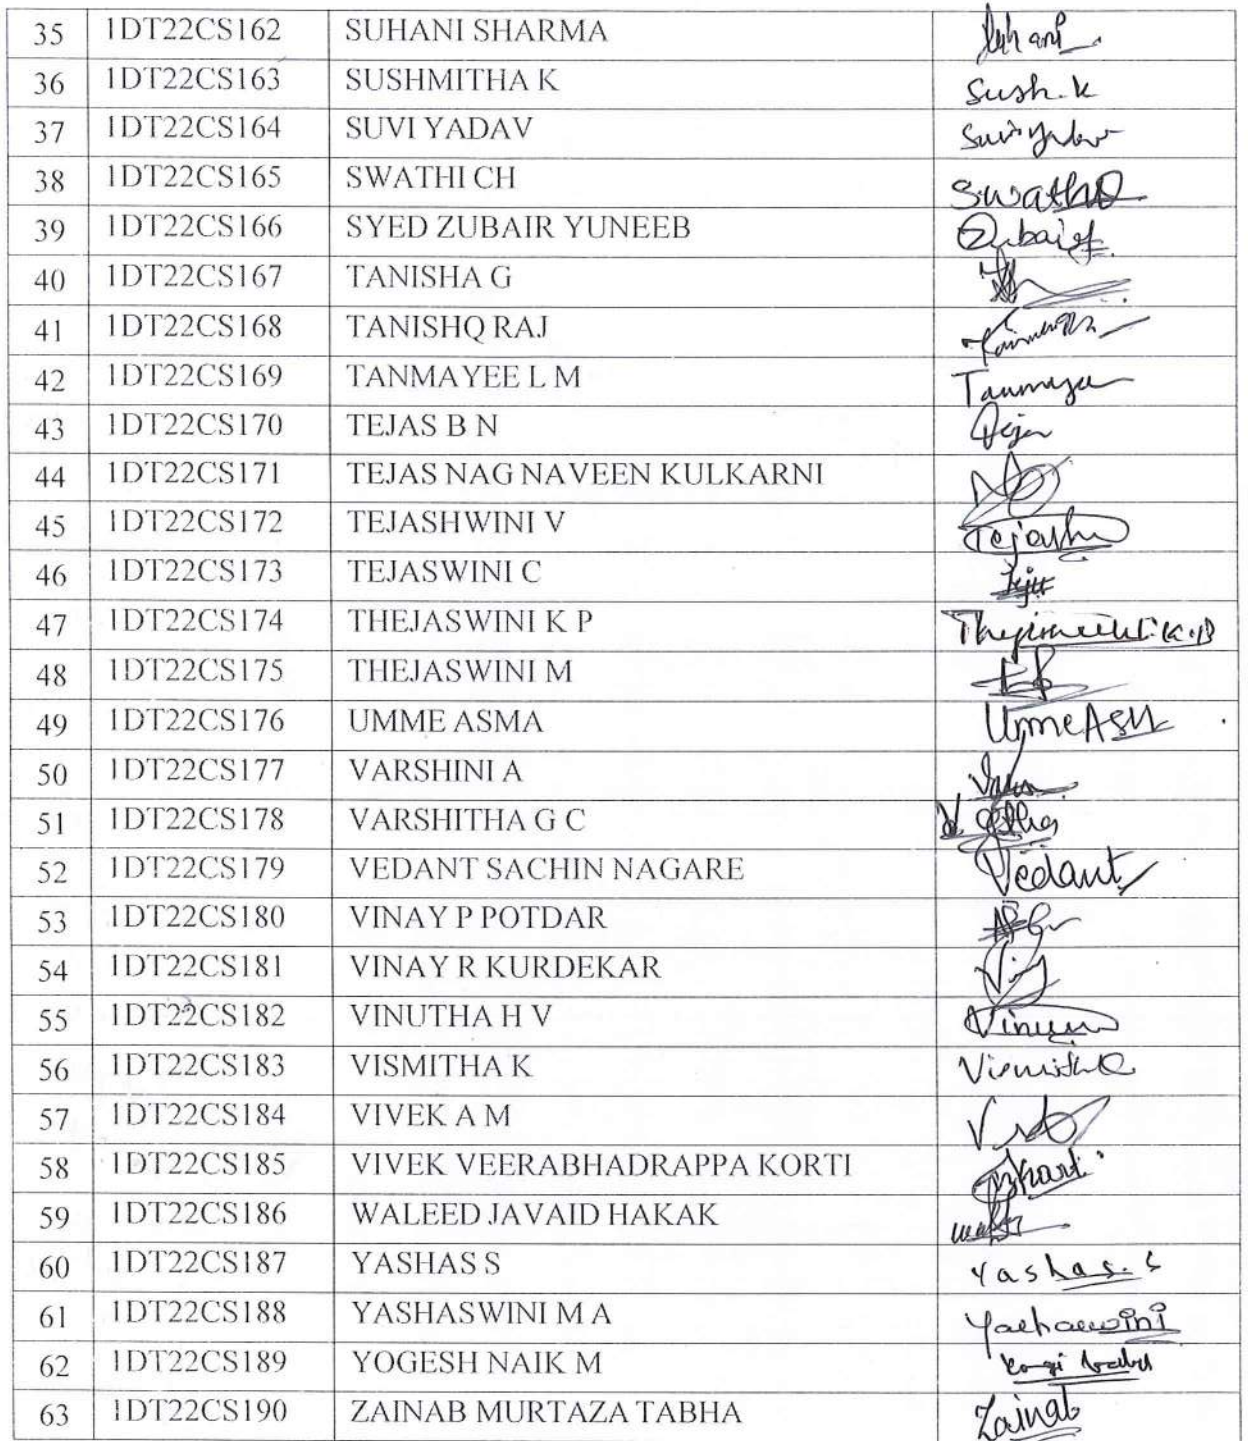 35 1DT22CS162 SUHANI SHARMA Suhani
36 1DT22CS163 SUSHMITHA K Sush.k
37 1DT22CS164 SUVI YADAV Suvi Yadav
38 1DT22CS165 SWATHI CH Swathi
39 1DT22CS166 SYED ZUBAIR YUNEEB Zubair
40 1DT22CS167 TANISHA G
41 1DT22CS168 TANISHQ RAJ
42 1DT22CS169 TANMAYEE L M
43 1DT22CS170 TEJAS B N Teja
44 1DT22CS171 TEJAS NAG NAVEEN KULKARNI
45 1DT22CS172 TEJASHWINI V Tejashw
46 1DT22CS173 TEJASWINI C
47 1DT22CS174 THEJASWINI K P
48 1DT22CS175 THEJASWINI M
49 1DT22CS176 UMME ASMA
50 1DT22CS177 VARSHINI A
51 1DT22CS178 VARSHITHA G C
52 1DT22CS179 VEDANT SACHIN NAGARE Vedant
53 1DT22CS180 VINAY P POTDAR
54 1DT22CS181 VINAY R KURDEKAR
55 1DT22CS182 VINUTHA H V
56 1DT22CS183 VISMITHA K
57 1DT22CS184 VIVEK A M
58 1DT22CS185 VIVEK VEERABHADRAPPA KORTI
59 1DT22CS186 WALEED JAVAID HAKAK
60 1DT22CS187 YASHAS S Yashas. S
61 1DT22CS188 YASHASWINI M A Yashaswini
62 1DT22CS189 YOGESH NAIK M
63 1DT22CS190 ZAINAB MURTAZA TABHA Zainab